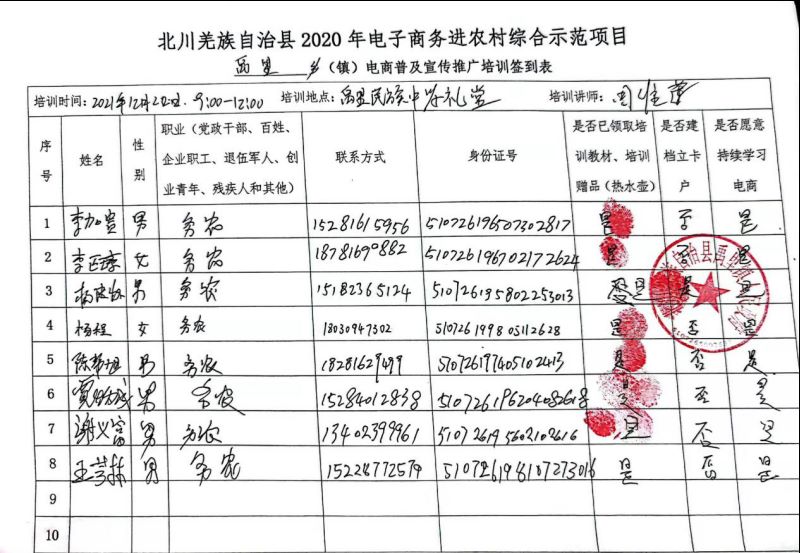 北川羌族自治县 2020 年电子商务进农村综合示范项目
禹里 乡（镇）电商普及宣传推广培训签到表
培训时间：2021年12月2日 9:00-12:00 培训地点：禹里民族中学礼堂 培训讲师：
序号 姓名 性别 职业（党政干部、百姓、企业职工、退伍军人、创业青年、残疾人和其他） 联系方式 身份证号 是否已领取培训教材、培训赠品（热水壶） 是否建档立卡户 是否愿意持续学习电商
1 男 务农 15281615956 510726196507302817 是 否 是
2 女 务农 18781690882 510726196702172624 是 否 是
3 男 务农 15182365124 510726195802253013 是 是 是
4 杨程 女 务农 18030947302 510726199805112628 是 否 是
5 男 务农 510726197405102413 是 否 是
6 男 务农 15284012838 是 否 是
7 谢义富 男 务农 13402399961 510726195602102616 是 否 是
8 男 务农 15228772579 510726198107273016 是 否 是
9
10